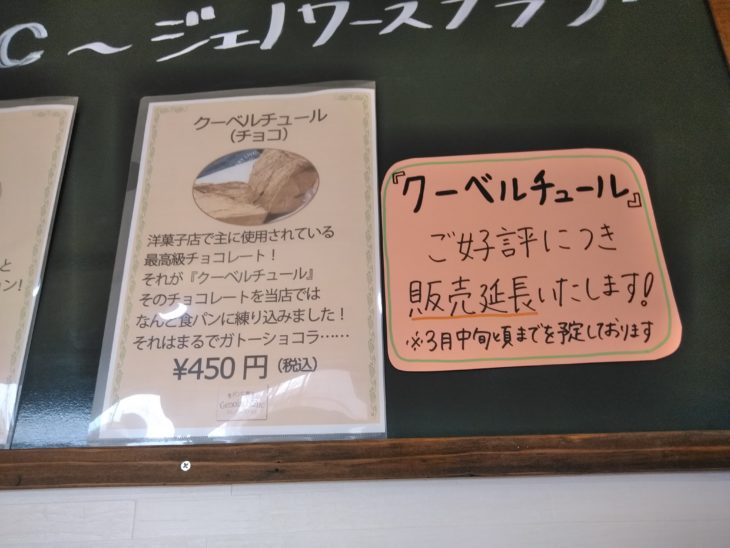 C〜ジェノワーズ
クーベルチュール
(チョコ)
洋菓子店で主に使用されている
最高級チョコレート！
それが『クーベルチュール』
そのチョコレートを当店では
なんと食パンに練り込みました！
それはまるでガトーショコラ……
¥450円(税込)
『クーベルチュール』
ご好評につき
販売延長いたします!
※3月中旬頃までを予定しております
と
ン!